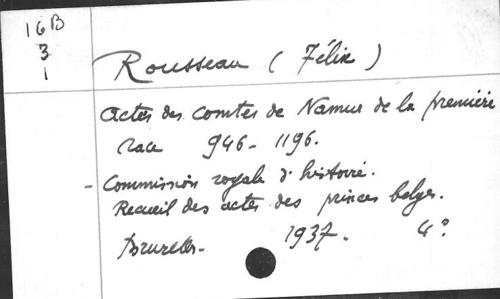 16B
3
1
Rousseau (Félix)
Actes des comtes de Namur de la première
race 946-1196.
- Commission royale d'histoire.
Recueil des actes des princes belges.
Bruxelles- 1937. 4°